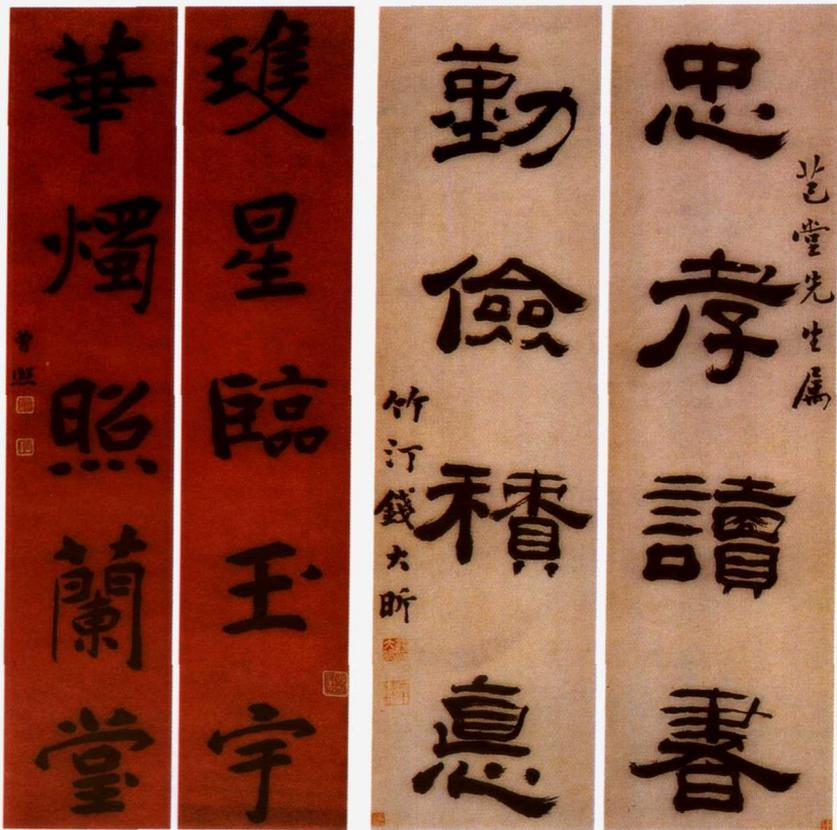 忠孝讀書
芑堂先生属
勤儉積悳
竹汀錢大昕
星臨玉宇
華燭照蘭堂
曾熙